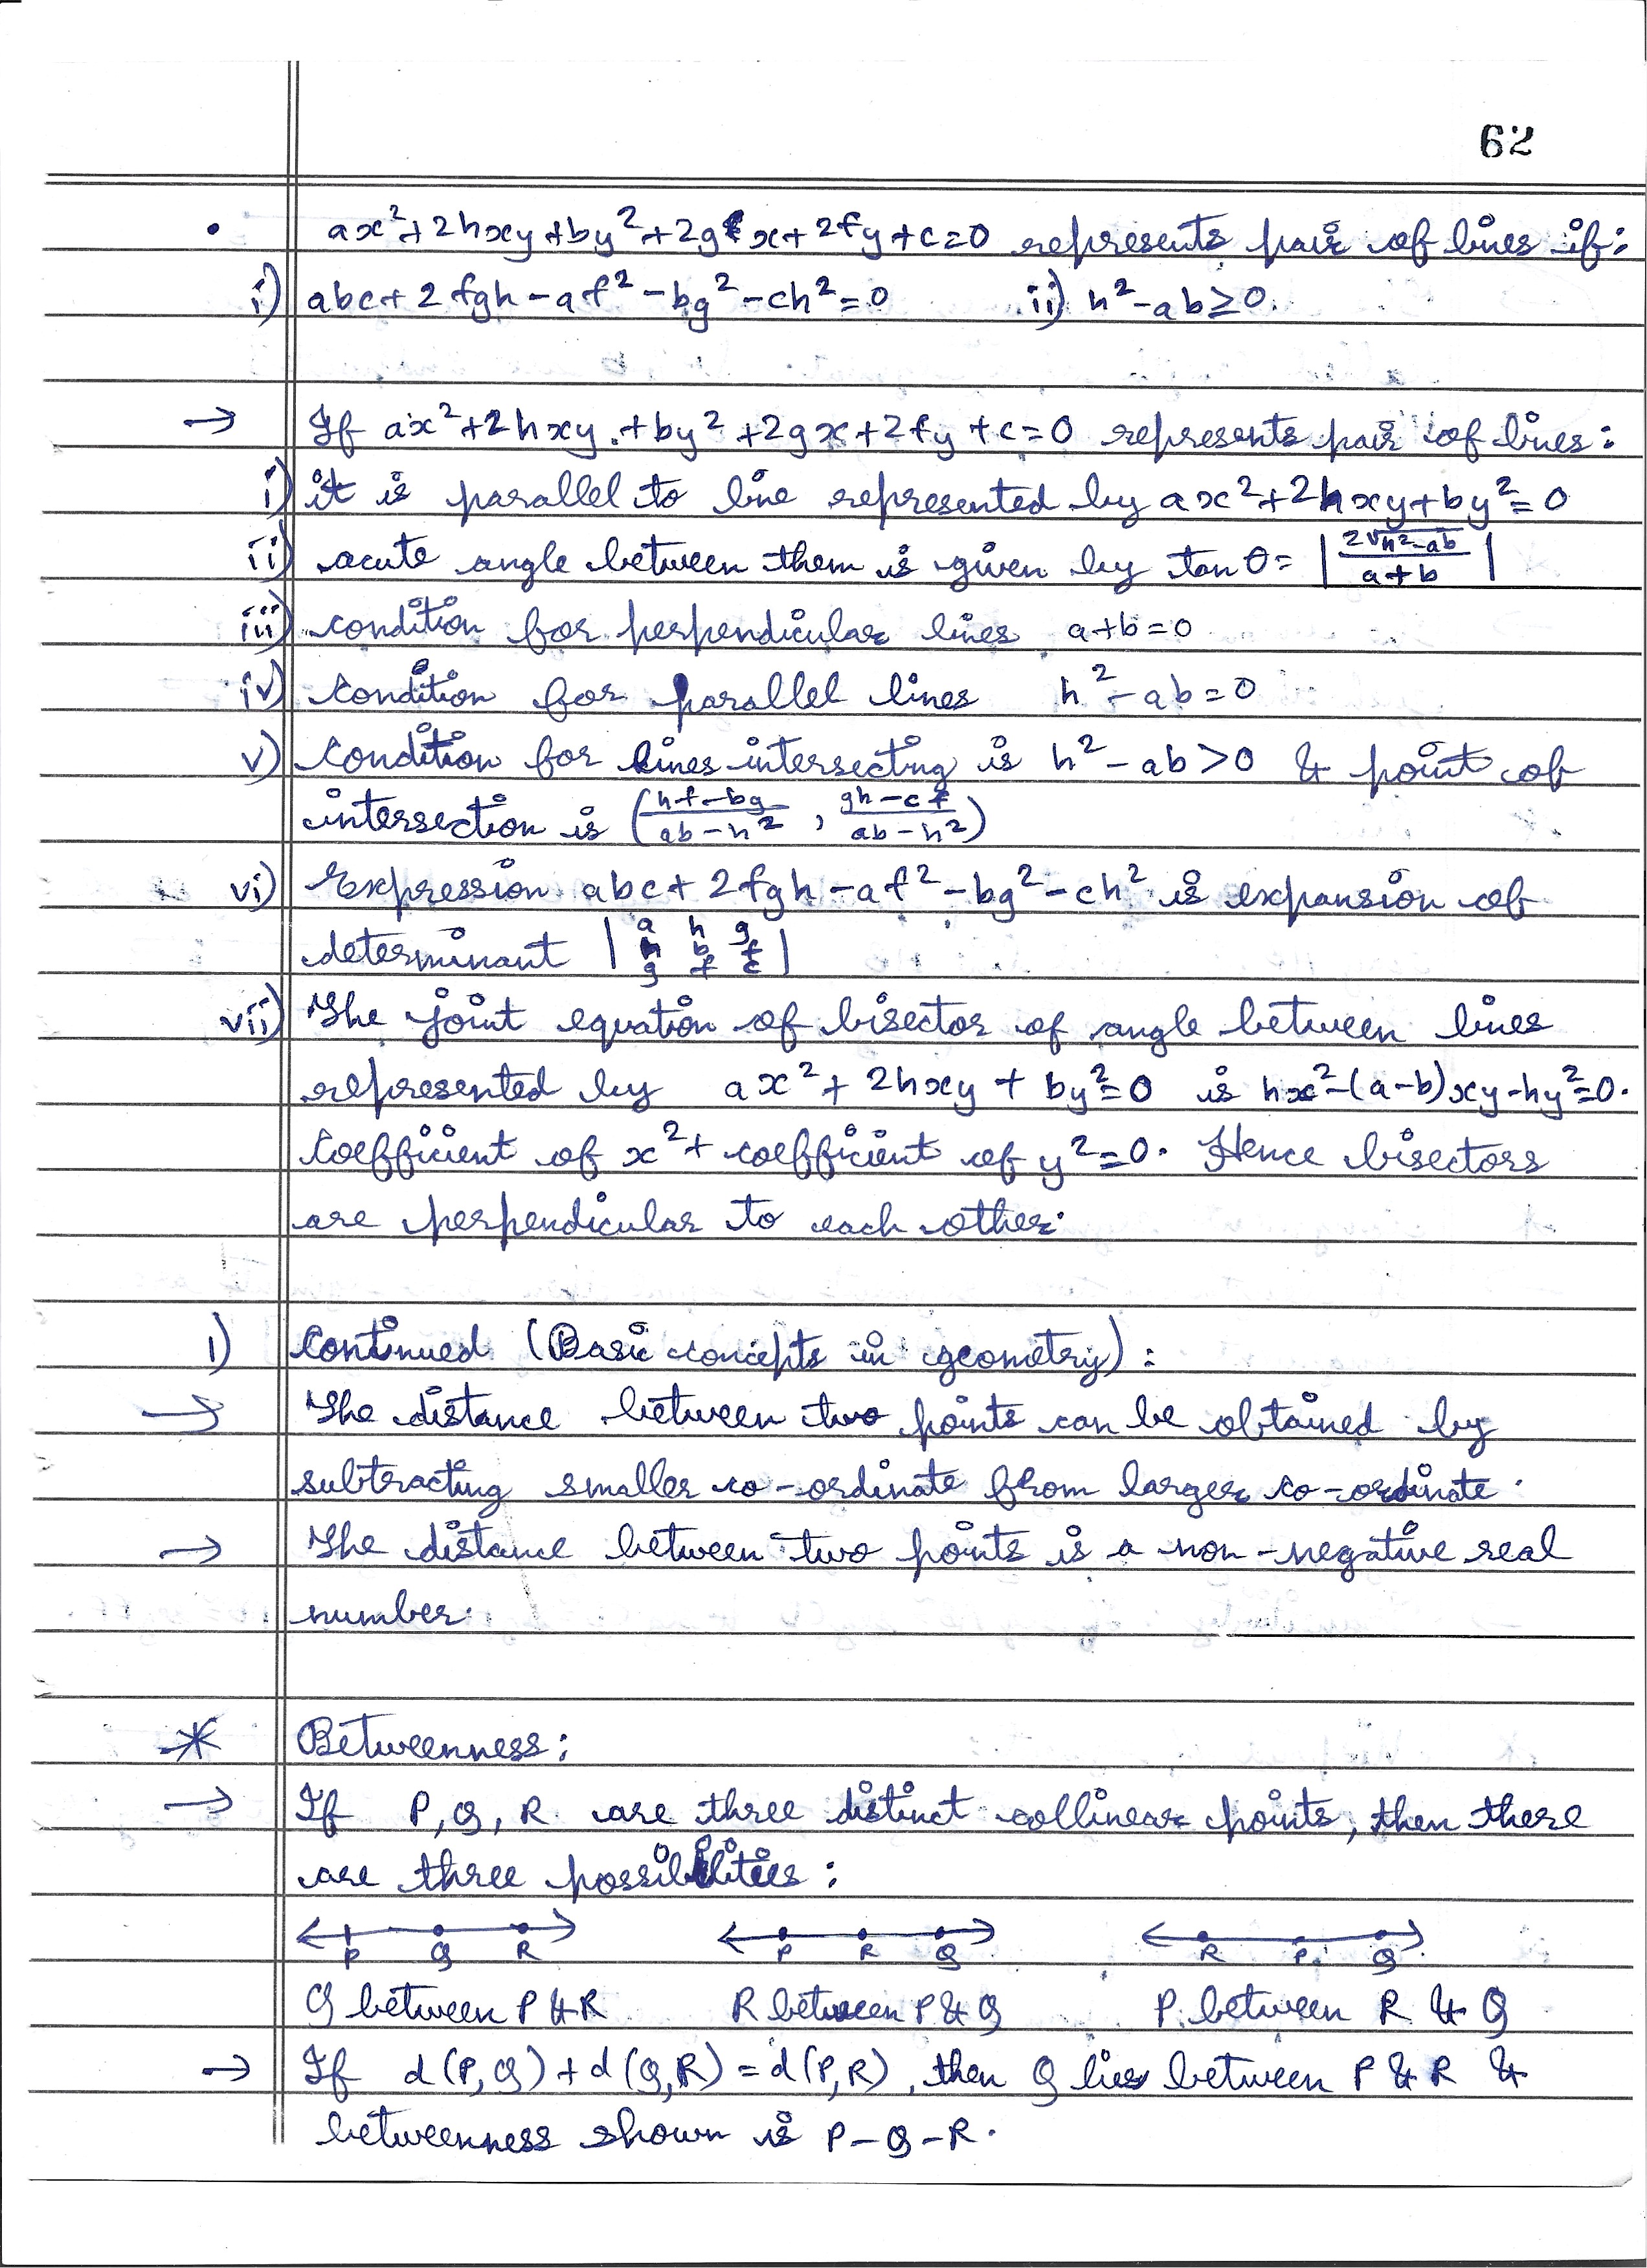 62
• ax²+2hxy+by²+2gx+2fy+c=0 represents pair of lines if:
i) abc+2fgh-af²-bg²-ch²=0 ii) h²-ab≥0.
→ If ax²+2hxy+by²+2gx+2fy+c=0 represents pair of lines:
i) it is parallel to line represented by ax²+2hxy+by²=0
ii) acute angle between them is given by tan θ= |2√h²-ab / a+b|
iii) condition for perpendicular lines a+b=0
iv) Condition for parallel lines h²-ab=0
v) Condition for lines intersecting is h²-ab>0 & point of
intersection is (hf-bg / ab-h², gh-cf / ab-h²)
vi) Expression abc+2fgh-af²-bg²-ch² is expansion of
determinant | a h g
h b f
g f c |
vii) The joint equation of bisector of angle between lines
represented by ax²+2hxy+by²=0 is hx²-(a-b)xy-hy²=0.
Coefficient of x²+ coefficient of y²=0. Hence bisectors
are perpendicular to each other.
1) Continued (Basic concepts in geometry):
→ The distance between two points can be obtained by
subtracting smaller co-ordinate from larger co-ordinate.
→ The distance between two points is a non-negative real
number.
* Betweenness:
→ If P, Q, R are three distinct collinear points, then there
are three possibilities:
P Q R P R Q R P Q
Q between P & R R between P & Q P between R & Q
→ If d(P,Q)+d(Q,R)=d(P,R), then Q lies between P & R &
betweenness shown is P-Q-R.